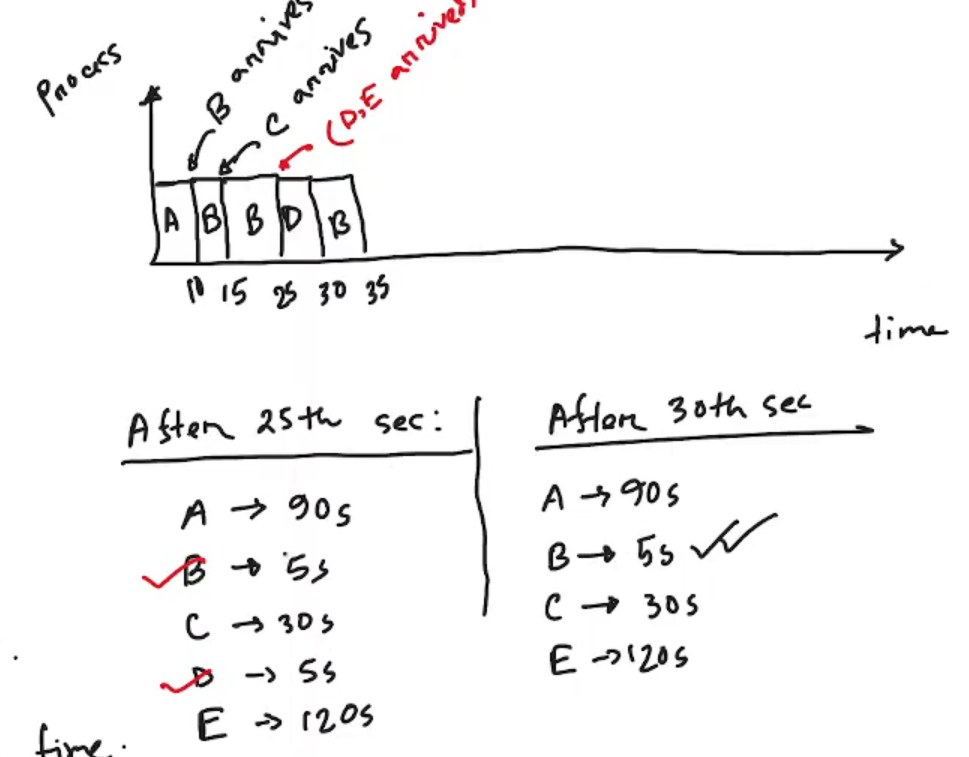 Process
B arrives
C arrives
(D,E arrives)
A B B D B
10 15 25 30 35
time
After 25th sec:
A → 90s
B → 5s
C → 30s
D → 5s
E → 120s
After 30th sec
A → 90s
B → 5s
C → 30s
E → 120s
time.